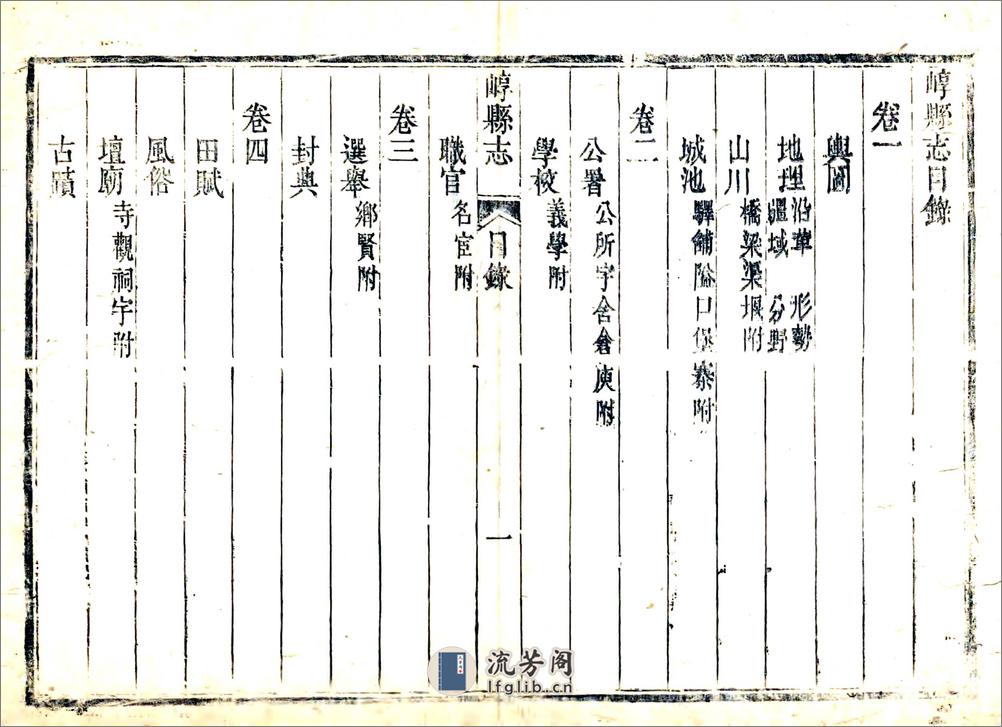 崞縣志目錄
卷一
輿圖
地理沿革 形勢
疆域 分野
山川橋梁渠堰附
城池驛舖隘口堡寨附
卷二
公署公所宇舍倉庾附
學校義學附
崞縣志 目錄 一
職官名宦附
卷三
選舉鄉賢附
封典
卷四
田賦
風俗
壇廟寺觀祠宇附
古蹟
流芳阁
lfglib.cn